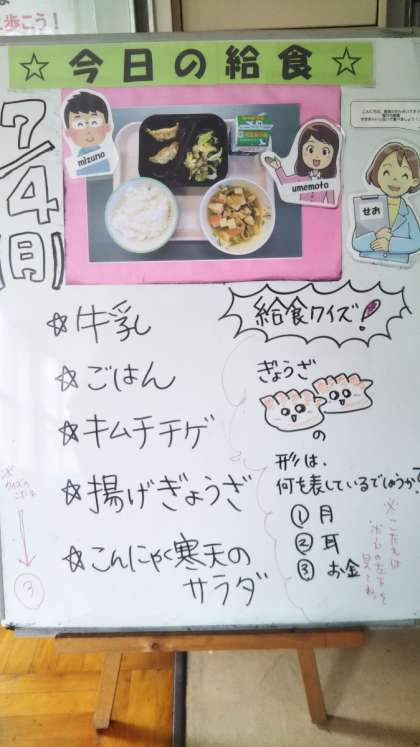 と歩こう!
☆今日の給食☆
7/4(月)
mizuno
umemoto
せお
☆牛乳
☆ごはん
☆キムチチゲ
☆揚げぎょうざ
☆こんにゃく寒天の
サラダ
給食クイズ!
ぎょうざ
の
形は、
何を表しているでしょうか?
① 月
② 耳
③ お金
※こたえは
ボードの左下を
見てね。
※
クイズの
こたえ
③